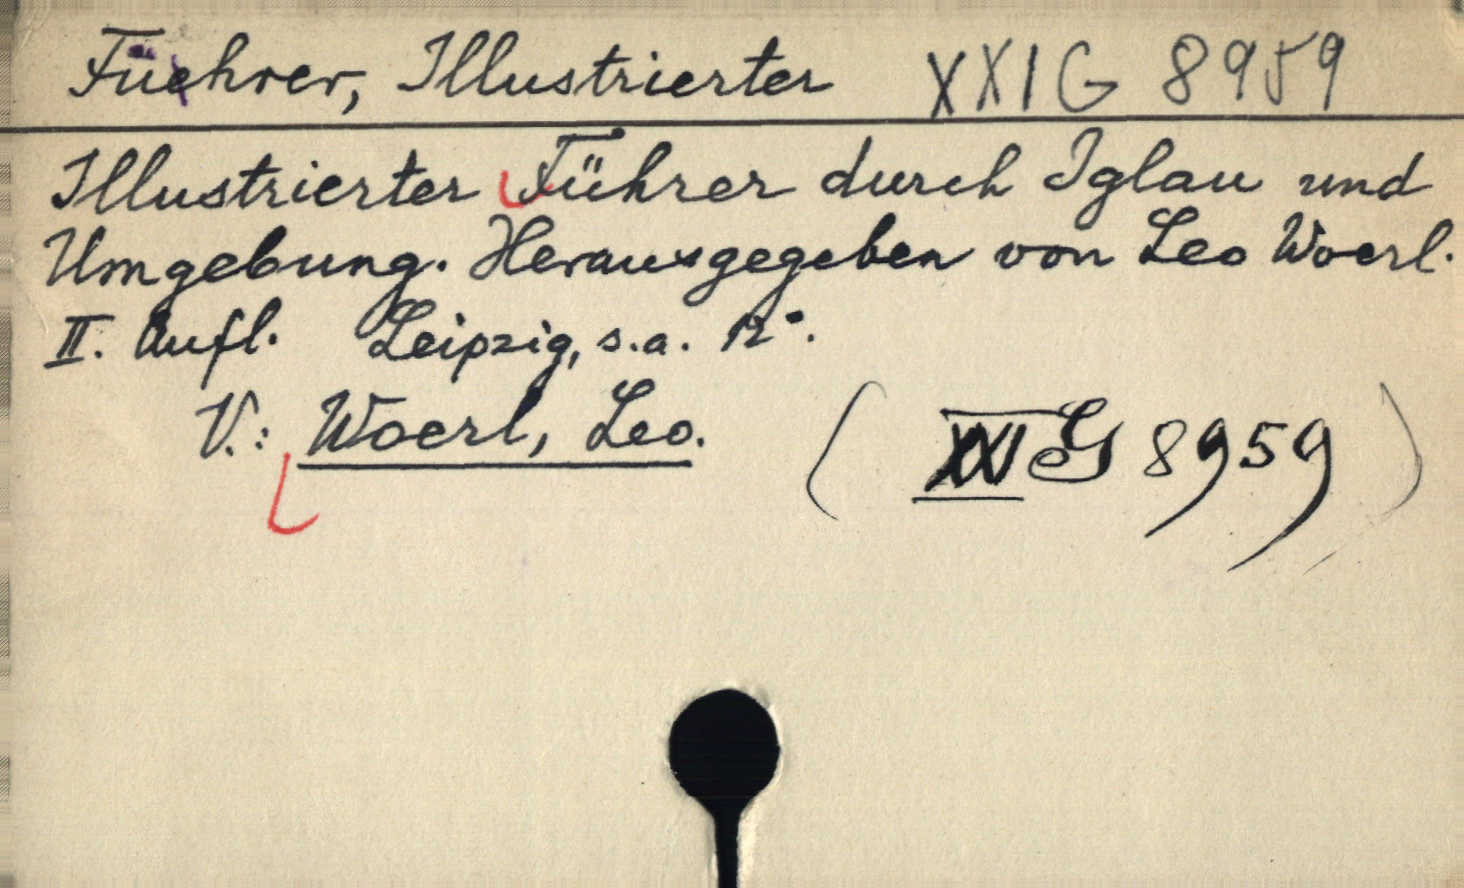 Fuehrer, Illustrierter XXI G 8959
Illustrierter Führer durch Iglau und
Umgebung. Herausgegeben von Leo Woerl.
II. Aufl. Leipzig, s.a. 12°.
V.: Woerl, Leo. ( XXI G 8959 )